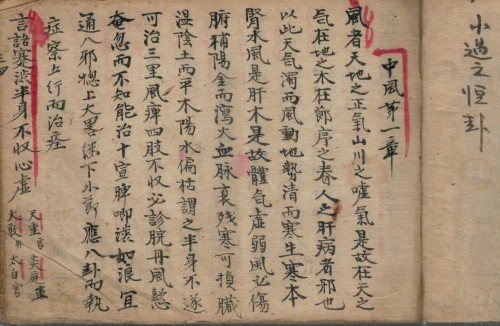 小過之恒卦
中風第一章
風者天地之正氣山川之噓氣是故在天之
氣在地之木在節序之春人之肝病者邪也
以此天氣濁而風動地熱清而寒生寒本
腎水風是肝木是故體氣虛弱風必傷
腑補陽金而瀉火血脉衰残寒可損臟
温陰土而平木陽水偏枯謂之半身不遂
可治三里風痺四肢不收必診脘丹風
奄忽而不知能治十宣脾唧淡如浪宜
通八邪惣上大思深下小 應八卦而執
症察五行而治症
言語蹇澁半身不收心虛
太白